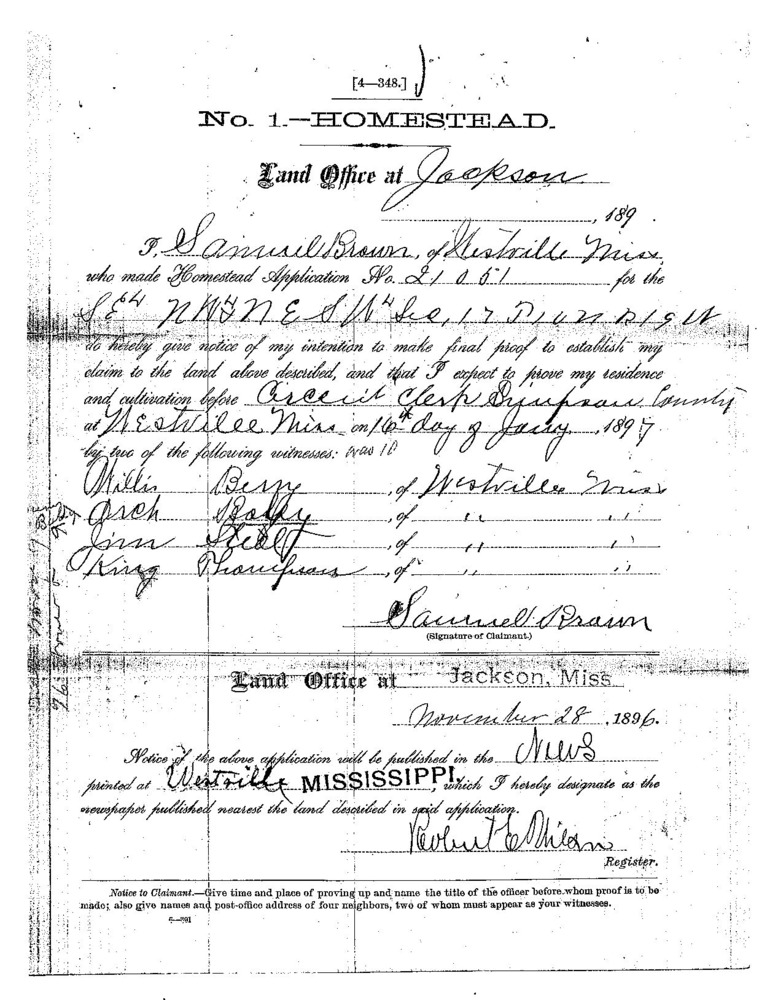 [4—348.]
No. 1.—HOMESTEAD.
Land Office at Jackson
, 189 .
I, Samuel Brown, of Westville Miss
who made Homestead Application No. 21051 for the
SE4 NW4 NE SW4 Sec, 17 T 10 N R 19 W
do hereby give notice of my intention to make final proof to establish my
claim to the land above described, and that I expect to prove my residence
and cultivation before Circuit Clerk Simpson County
at Westville Miss on 16th day of Jany, 1897
by two of the following witnesses:
Willis Berry, of Westville Miss
Arch , of " "
Jim , of " "
King Thompson, of " "
Samuel Brown
(Signature of Claimant.)
Land Office at Jackson, Miss
November 28, 1896.
Notice of the above application will be published in the News
printed at Westville MISSISSIPPI, which I hereby designate as the
newspaper published nearest the land described in said application.
Robert E
Register.
Notice to Claimant.—Give time and place of proving up and name the title of the officer before whom proof is to be
made; also give names and post-office address of four neighbors, two of whom must appear as your witnesses.